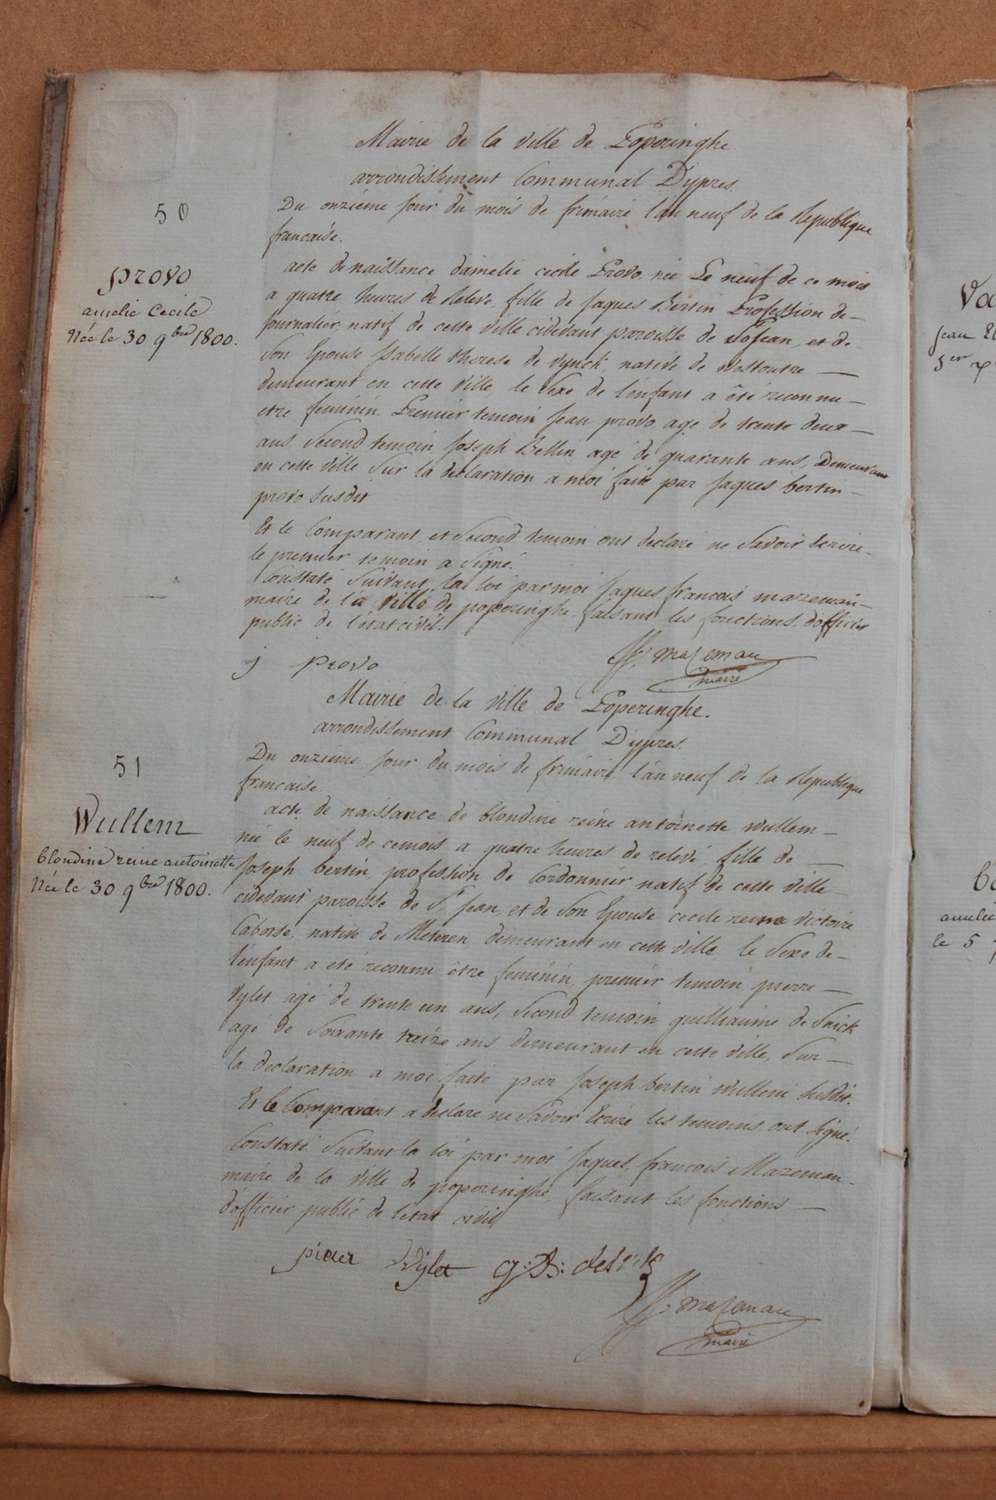 Mairie de la ville de Poperinghe
arrondissement Communal D'ypres.
50
Du onzième jour du mois de frimaire l'an neuf de la Republique
francaise.
provo
amelie Cecile
Née le 30 9bre 1800.
acte de naissance damelie cecile Provo, née Le neuf de ce mois
a quatre heures de relevé, fille de Jaques Bertin Profession de
journalier, natif de cette ville cidevant paroisse de St Jean, et de
Son Epouse Isabelle therese de vynck, native de westoutre
demeurant en cette ville le sexe de l'enfant a été reconnu
etre feminin. Premier temoin Jean provo agé de trente deux
ans Second temoin Joseph Bellin agé de quarante ans, Demeurant
en cette ville Sur la declaration a moi faite par Jaques bertin
provo Susdit
Et le Comparant et Second temoin ont declaré ne Savoir Ecrire
le premier temoin a Signé.
Constaté Suivant la loi par moi Jaques francois mazeman
maire de la ville de poperinghe faisant les fonctions d'officier
public de l'etat civil.
j provo
mazeman
maire
Mairie de la ville de Poperinghe.
arrondissement Communal D'ypres.
51
Du onzième jour du mois de frimaire l'an neuf de la Republique
francaise
Wullem
blondine reine antoinette
Née le 30 9bre 1800.
acte de naissance de blondine reine antoinette wullem
née le neuf de cemois a quatre heures de relevé, fille de
Joseph bertin profession de Cordonnier natif de cette ville
cidevant paroisse de St Jean, et de Son Epouse cecile reine victoire
Labosse, native de Meteren demeurant en cette ville le Sexe de
l'enfant a eté reconnu être feminin, premier temoin pierre
vylet agé de trente un ans, Second temoin guillaume de Snick
agé de Soixante treize ans demeurant en cette ville, Sur
la declaration a moi faite par Joseph bertin wullem Susdit.
Et le Comparant a declaré ne Savoir Ecrire les temoins ont Signé.
Constaté Suivant la loi par moi Jaques francois Mazeman
maire de la ville de poperinghe faisant les fonctions
d'officier public de l'etat civil
pieter Vijlet g: B:
mazeman
maire
Jean
amelie
le 5